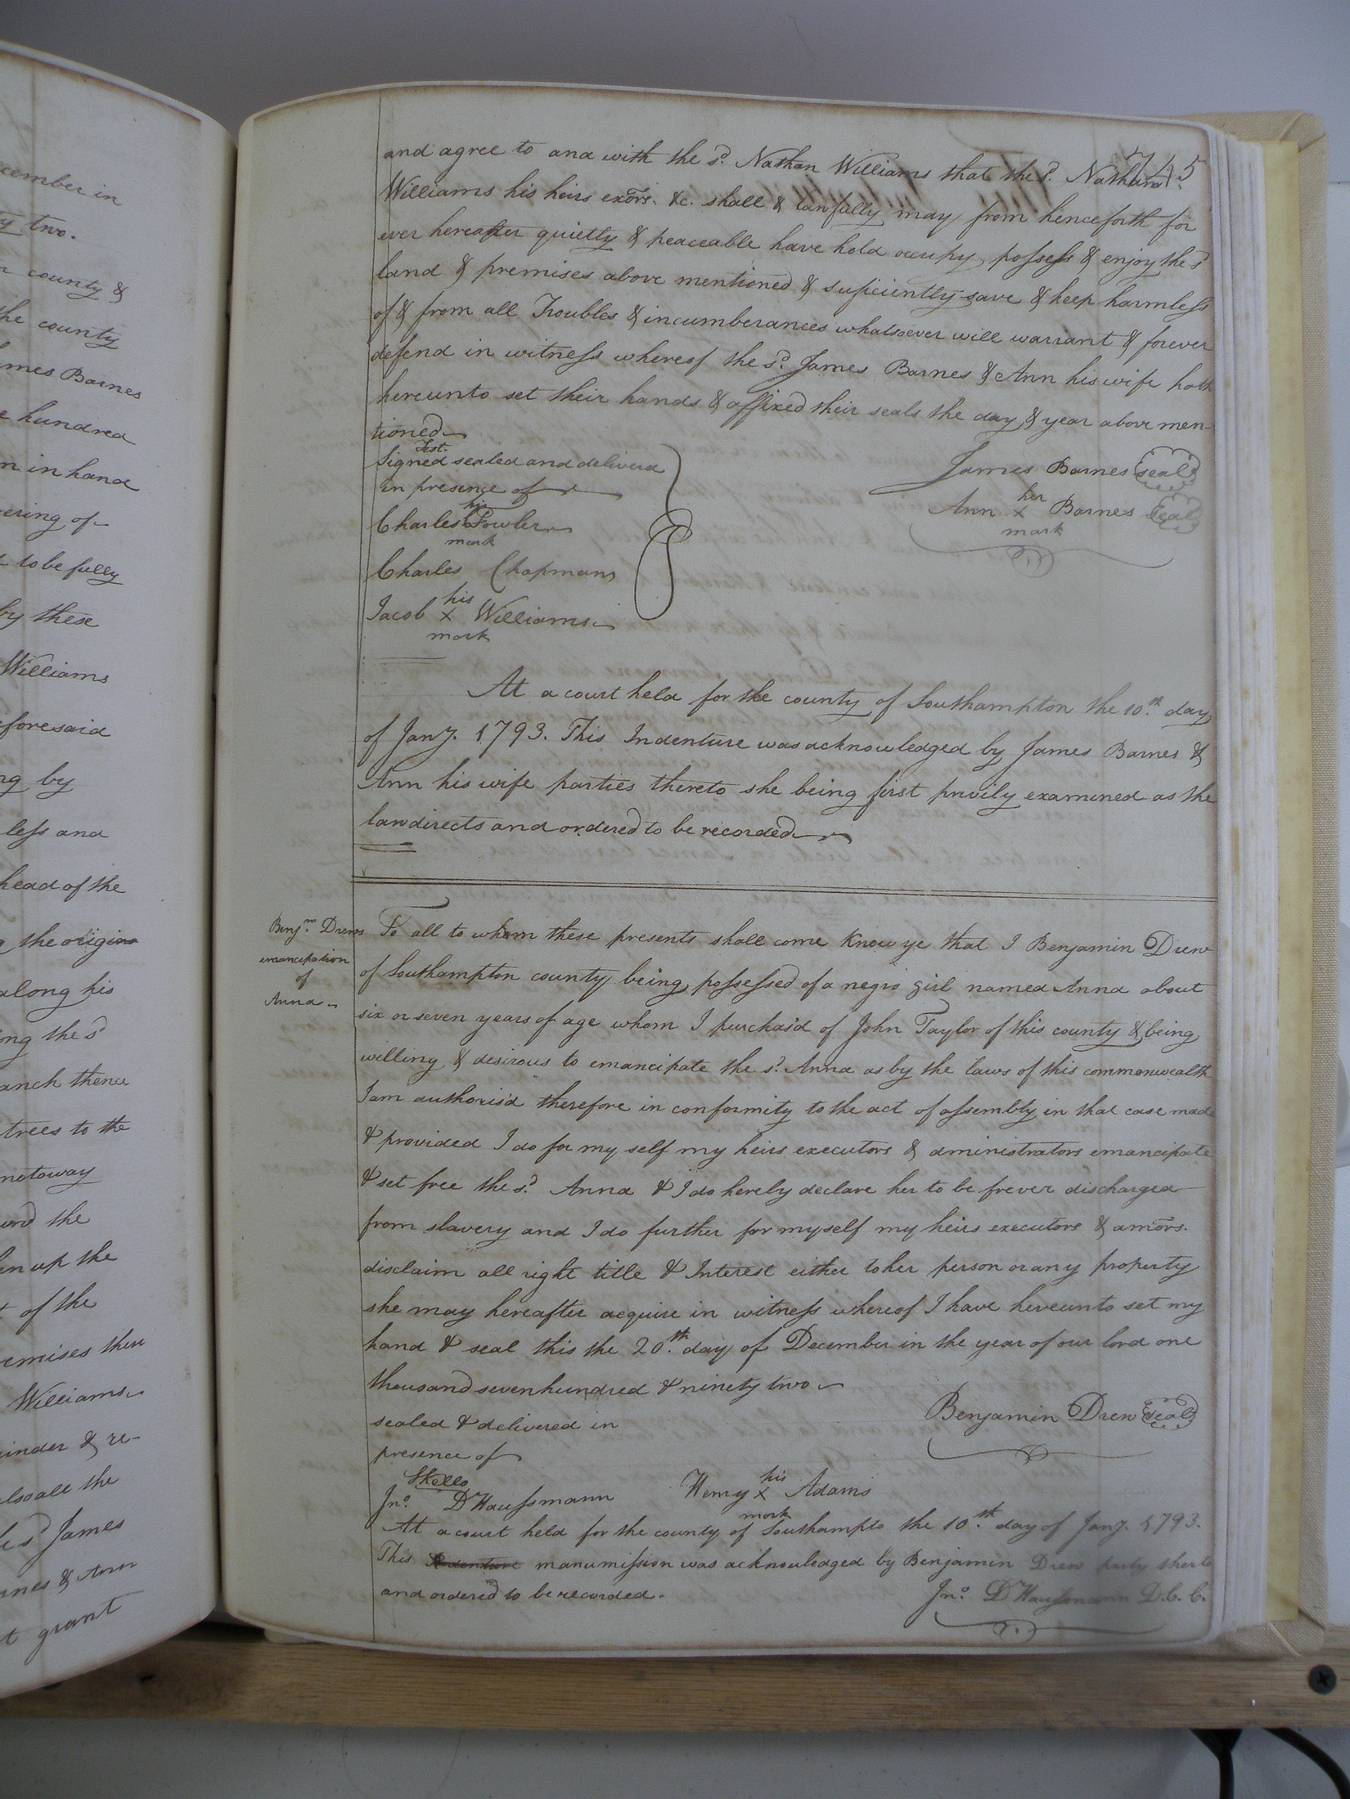 cember in
y two.
r county &
the county
mes Barnes
e hundred
n in hand
ering of
t to be fully
by these
Williams
foresaid
ng by
less and
head of the
g the origina
along his
ong the sd
anch thence
trees to the
nottoway
the
en up the
t of the
remises then
Williams
inder & re-
also all the
James
rnes & Ann
t grant
745
and agree to and with the sd. Nathan Williams that the sd. Nathan
Williams his heirs exors. &c. shall & lawfully may from henceforth for
ever hereafter quietly & peaceable have hold occupy possess & enjoy the sd
land & premises above mentioned & suficiently save & keep harmless
of & from all Troubles & incumberances whatsoever will warrant & forever
defend in witness whereof the sd. James Barnes & Ann his wife hath
hereunto set their hands & affixed their seals the day & year above men-
tioned
Test.
Signed sealed and deliverd
in presence of
James Barnes seal
Ann her x mark Barnes seal
Charles his Powler mark
Charles Chapman
Jacob his x mark Williams
At a court held for the county of Southampton the 10.th day
of Jany. 1793. This Indenture was acknowledged by James Barnes &
Ann his wife parties thereto she being first privily examined as the
law directs and ordered to be recorded
Benjm Drews
emancipation
of
Anna
To all to whom these presents shall come Know ye that I Benjamin Drew
of Southampton county being possessed of a negro girl named Anna about
six or seven years of age whom I purchasd of John Taylor of this county & being
willing & desirous to emancipate the sd. Anna as by the laws of this commonwealth
I am authorisd therefore in conformity to the act of assembly in that case made
& provided I do for my self my heirs executors & dministrators emancipate
& set free the sd. Anna & I do hereby declare her to be frever discharged
from slavery and I do further for myself my heirs executors & amors.
disclaim all right title & Interest either to her person or any property
she may hereafter acquire in witness whereof I have hereunto set my
hand & seal this the 20.th day of December in the year of our lord one
thousand seven hundred & ninety two
sealed & delivered in
presence of
Benjamin Drew seal
Skello
Jno. D Haussmann Henry his x mark Adams
At a court held for the county of Southampto the 10.th day of Jany. 1793.
This Indenture manumission was acknowledged by Benjamin Drew party thereto
and ordered to be recorded.
Jno. D Haussmann D.C.C.